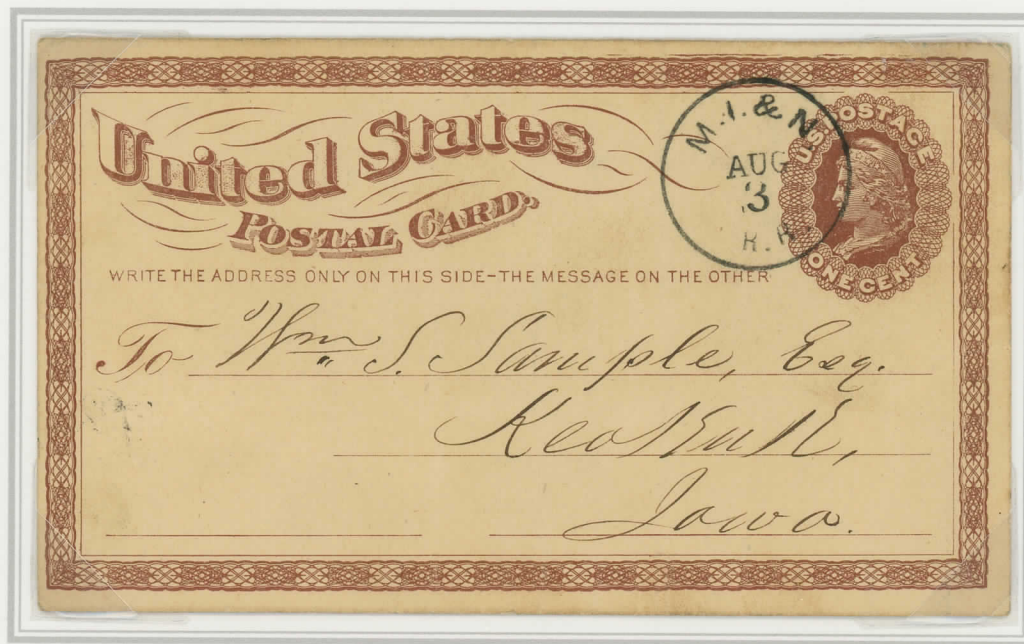 United States
POSTAL CARD.
WRITE THE ADDRESS ONLY ON THIS SIDE–THE MESSAGE ON THE OTHER
M. I. & N.
AUG
3
R. R.
U.S. POSTAGE
ONE CENT
To Wm. S. Sample, Esq.
KeoKuK,
Iowa.